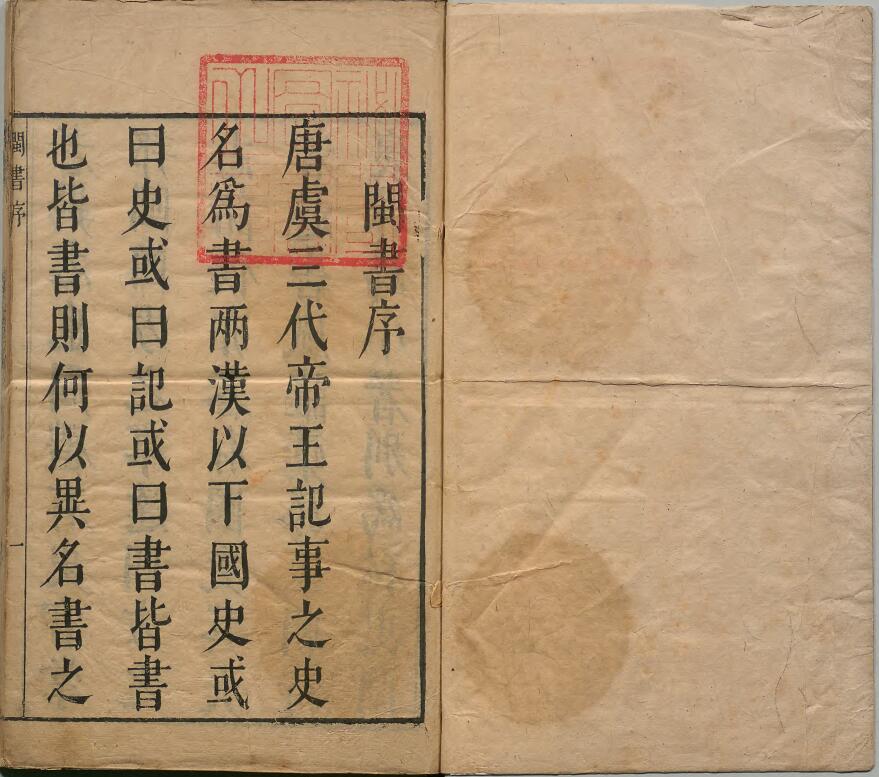 閩書序
唐虞三代帝王記事之史
名爲書两漢以下國史或
曰史或曰記或曰書皆書
也皆書則何以異名書之
閩書序
一